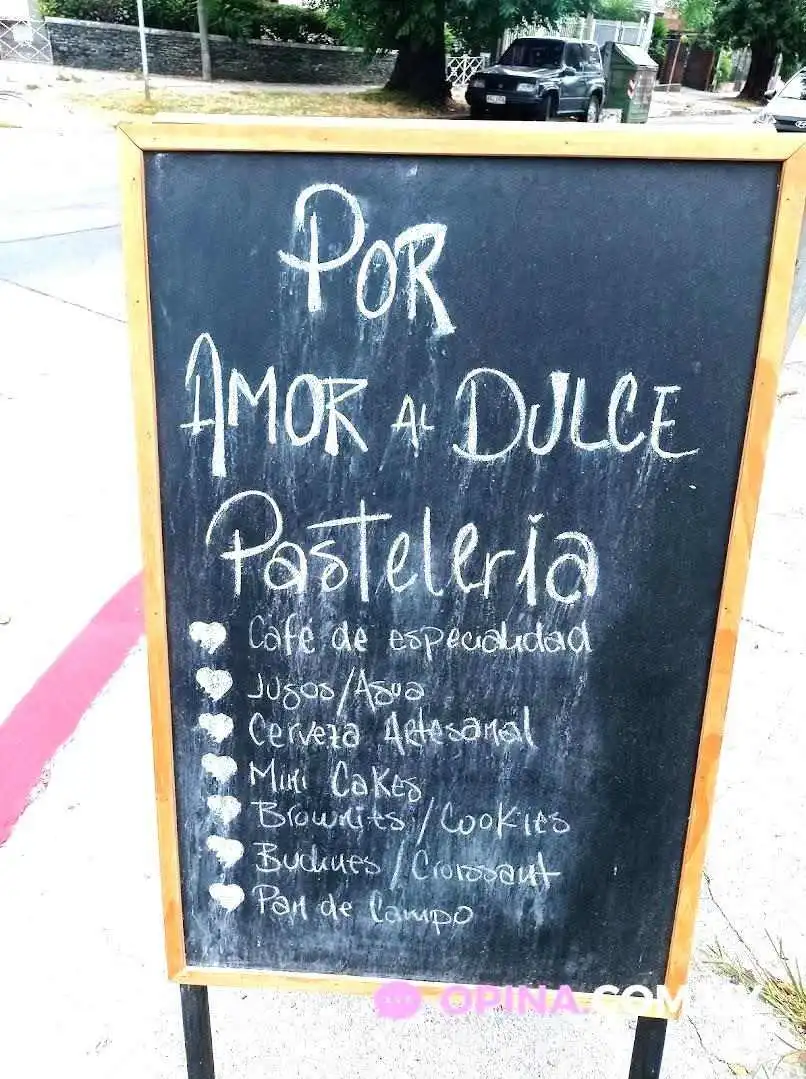 POR
AMOR AL DULCE
Pastelería
Café de especialidad
Jugos/Agua
Cerveza Artesanal
Mini Cakes
Brownies/Cookies
Budines/Croissant
Pan de Campo
OPINA.COM.UY